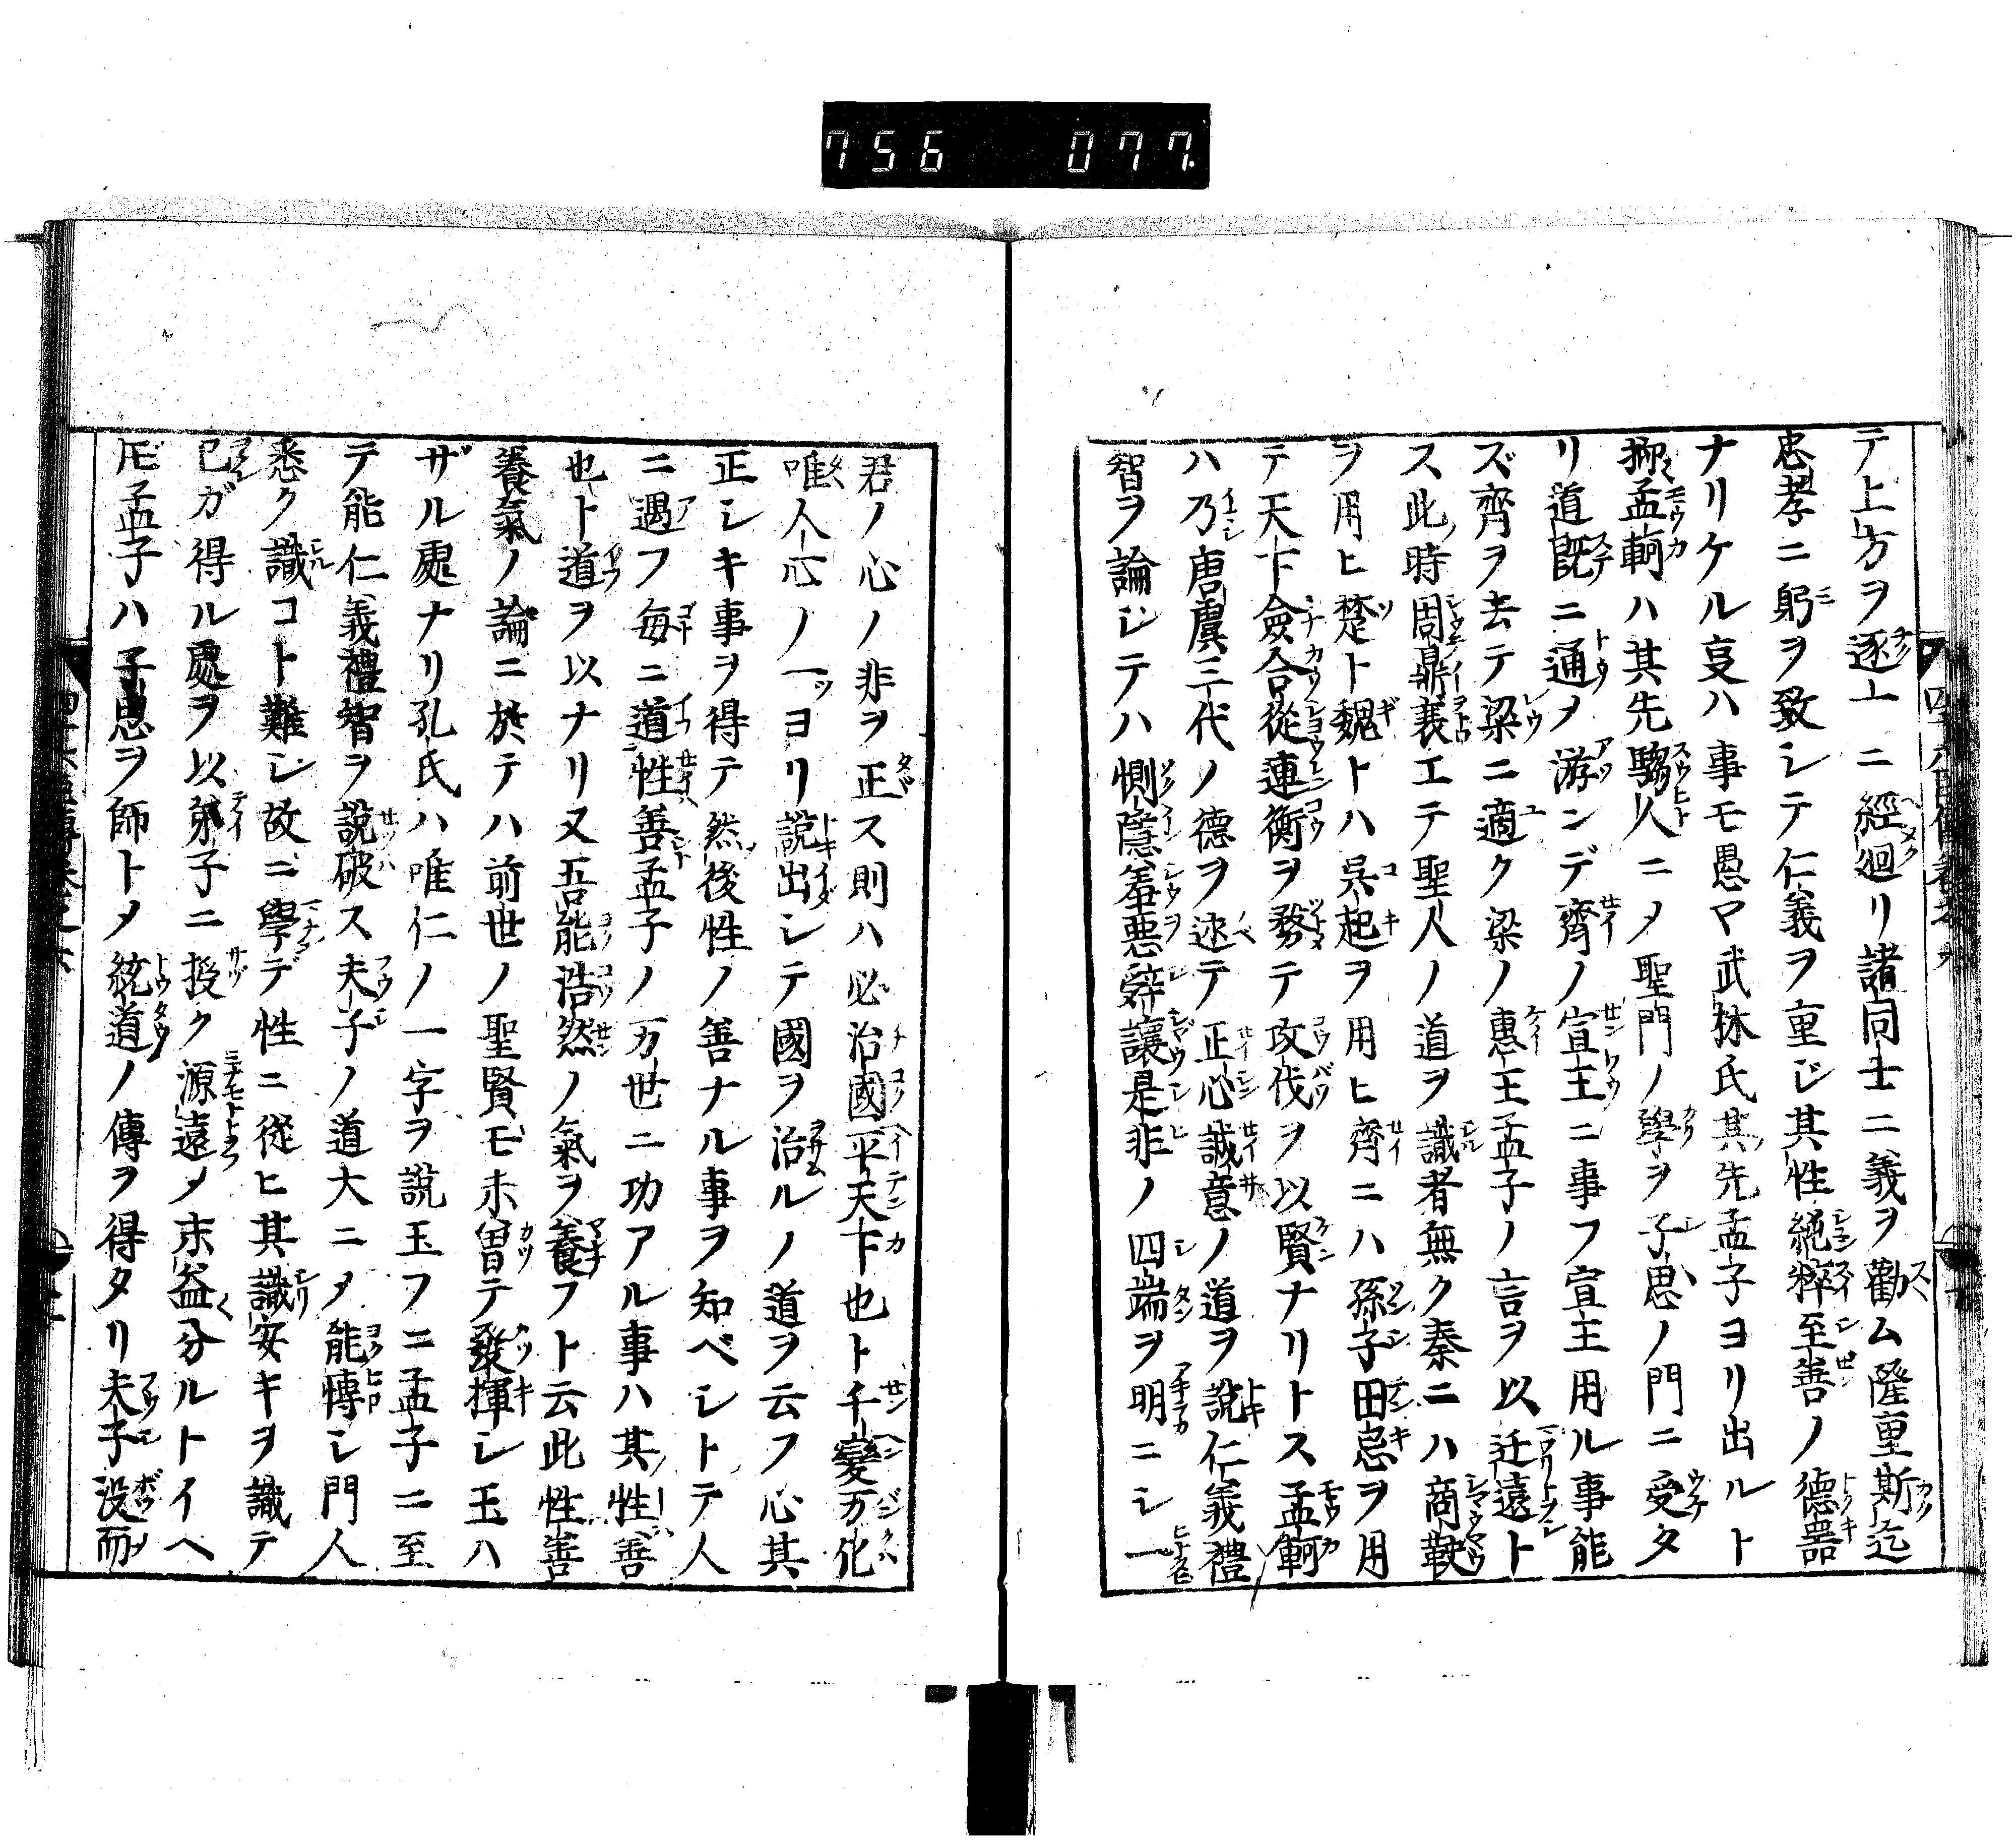 756 077.
テ上方ヲ逐上ニ經廻リ諸同士ニ義ヲ勸ム隆重斯迄
忠孝ニ躬ヲ致シテ仁義ヲ重ジ其性純粹至善ノ德器
ナリケル㕝ハ事モ愚マ武林氏其先孟子ヨリ出ルト
抑孟軻ハ其先騶人ニ〆聖門ノ學ヲ子思ノ門ニ受タ
リ道既ニ通〆游ンデ齊ノ宣王ニ事フ宣王用ル事能
ズ齊ヲ去テ梁ニ適ク梁ノ惠王孟子ノ言ヲ以迂遠ト
ス此時周鼎衰エテ聖人ノ道ヲ識者無ク秦ニハ商鞅
ヲ用ヒ楚ト魏トハ呉起ヲ用ヒ齊ニハ孫子田忌ヲ用
テ天下僉合從連衡ヲ務テ攻伐ヲ以賢ナリトス孟軻
ハ乃唐虞三代ノ德ヲ述テ正心誠意ノ道ヲ説仁義禮
智ヲ論ジテハ惻隱羞悪辭讓是非ノ四端ヲ明ニシ一
君ノ心ノ非ヲ正ス則ハ必治國平天下也ト千變万化
唯人心ノ一ツヨリ説出シテ國ヲ治ルノ道ヲ云フ心其
正シキ事ヲ得テ然後性ノ善ナル事ヲ知ベシトテ人
ニ遇フ毎ニ道性善孟子ノ万世ニ功アル事ハ其性善
也ト道ヲ以ナリ又吾能浩然ノ氣ヲ養フト云此性善
養氣ノ論ニ於テハ前世ノ聖賢モ未曽テ發揮シ玉ハ
ザル處ナリ孔氏ハ唯仁ノ一字ヲ説玉フニ孟子ニ至
テ能仁義禮智ヲ説破ス夫子ノ道大ニ〆能博シ門人
悉ク識コト難シ故ニ學デ性ニ從ヒ其識安キヲ識テ
已ガ得ル處ヲ以弟子ニ授ク源遠〆末益分ルトイヘ
𪜈孟子ハ子思ヲ師ト〆統道ノ傳ヲ得タリ夫子没而